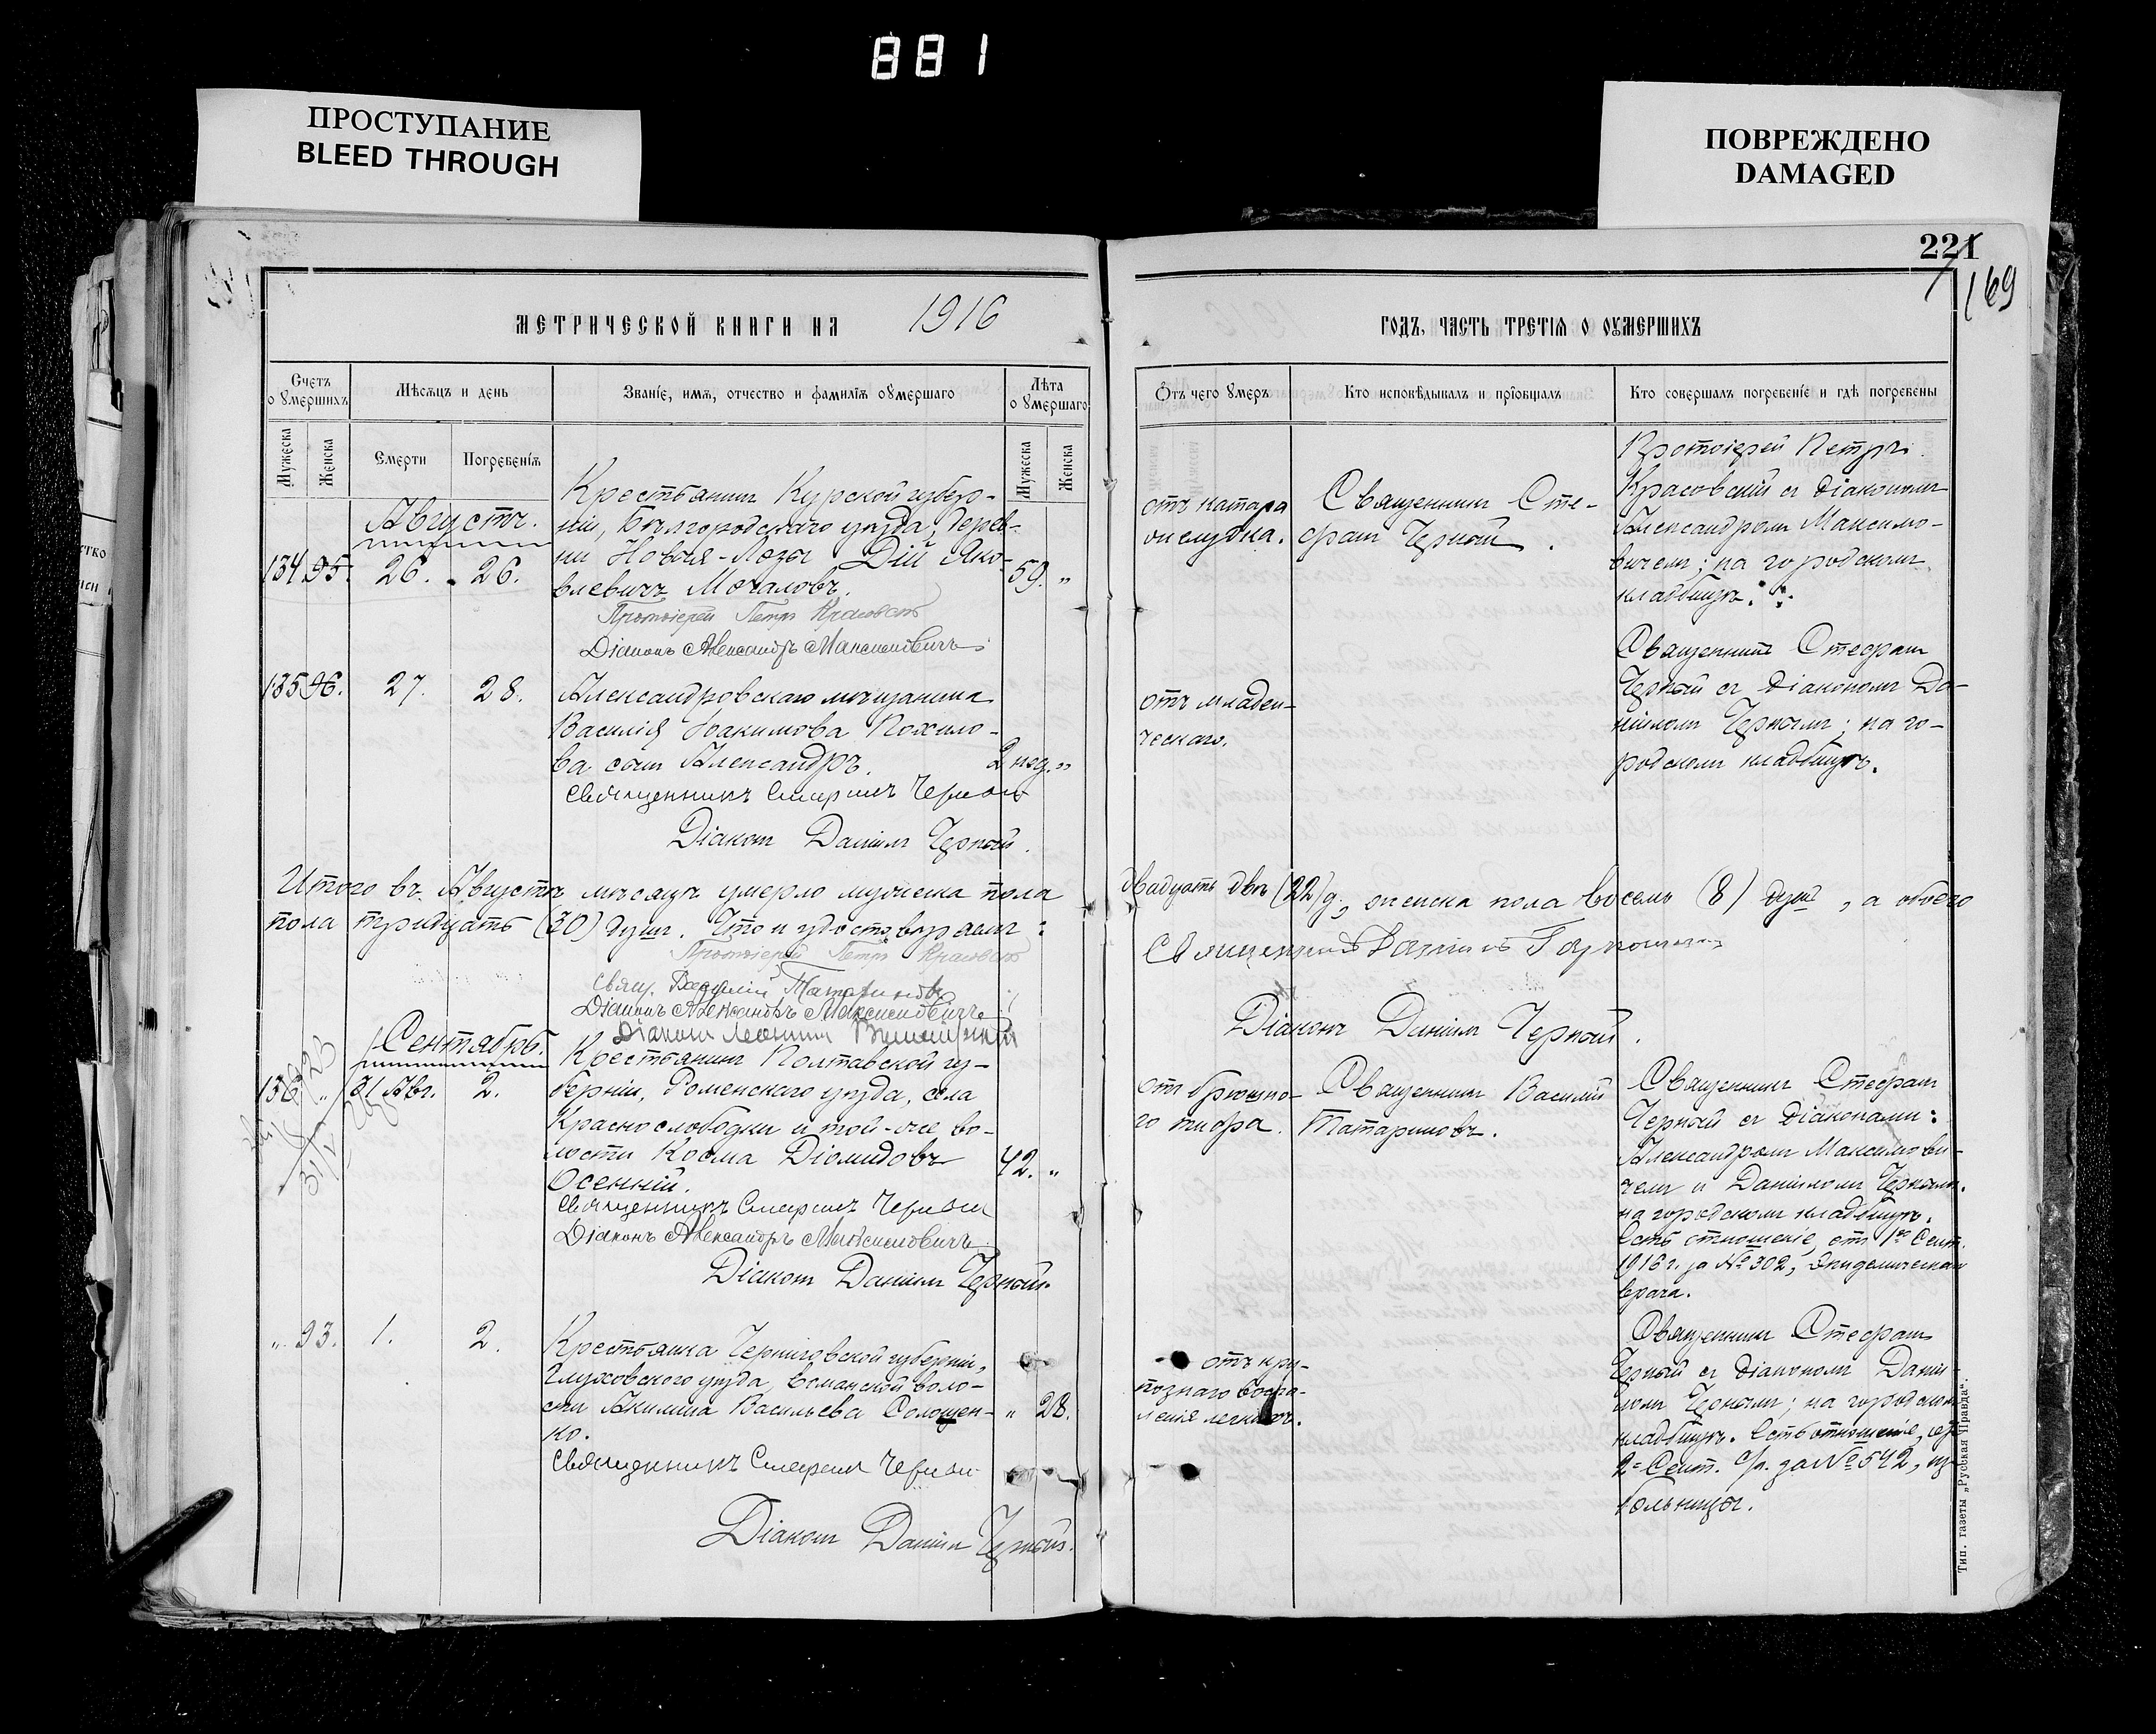 881
ПРОСТУПАНИЕ
BLEED THROUGH
ПОВРЕЖДЕНО
DAMAGED
221
169
МЕТРИЧЕСКОЙ КНИГИ НА 1916
ГОДЪ, ЧАСТЬ ТРЕТІѦ О ОУМЕРШИХЪ
Счетъ о умершихъ
Мѣсяцъ и день
Званіе, имя, отчество и фамилія оумершаго
Лѣта о умершаго
Мужеска
Женска
Смерти
Погребенія
Мужеска
Женска
Отъ чего умеръ
Кто исповѣдывалъ и пріобщалъ
Кто совершалъ погребеніе и гдѣ погребены
Августъ.
134 95. 26. 26.
Крестьянинъ Курской губер-
ніи, Бѣлгородскаго уѣзда, дерев-
ни Новая-Лоза Дій Яко-
влевичъ Мочаловъ. 59. „
Протоіерей Петръ Красовскій
Діаконъ Александръ Максимовичъ
отъ катара
желудка.
Священникъ Сте-
фанъ Черный.
Протоіерей Петръ
Красовскій съ діакономъ
Александромъ Максимо-
вичемъ; на городскомъ
кладбищѣ.
135 96. 27. 28.
Александровскаго мѣщанина
Василія Іоакимова Похило-
ва сынъ Александръ. 2 нед. „
Священникъ Стефанъ Черный
Діаконъ Даніилъ Черный.
отъ младен-
ческаго.
Священникъ Стефанъ
Черный съ діакономъ Да-
ніиломъ Чернымъ; на го-
родскомъ кладбищѣ.
Итого въ Августѣ мѣсяцѣ умерло мужеска пола двадцать двѣ (22) д., женска пола восемь (8) душъ, а обоего
пола тридцать (30) душъ. Что и удостовѣряемъ:
Протоіерей Петръ Красовскій
Свящ. Василій Татариновъ
Діаконъ Александръ Максимовичъ
Діаконъ Леонидъ
Священникъ
Діаконъ Даніилъ Черный.
Сентябрь.
136 „ 31 Авг. 2.
Крестьянинъ Полтавской гу-
берніи, Роменскаго уѣзда, села
Краснослободки и той-же во-
лости Косма Діомидовъ 42. „
Осенній.
Священникъ Стефанъ Черный
Діаконъ Александръ Максимовичъ
Діаконъ Даніилъ Черный.
отъ брюшно-
го тифа.
Священникъ Василій
Татариновъ.
Священникъ Стефанъ
Черный съ діаконами:
Александромъ Максимови-
чемъ и Даніиломъ Чернымъ.
на городскомъ кладбищѣ.
Есть отношеніе, отъ 1го Сент.
1916 г. за № 302, Эпидемическаго
врача.
„ 93. 1. 2.
Крестьянка Черниговской губерніи,
Глуховского уѣзда, Есманской воло-
сти Акилина Васильева Солошен- „ 28.
ко.
Священникъ Стефанъ Черный
Діаконъ Даніилъ Черный.
отъ кру-
познаго воспа-
ленія легкихъ.
Священникъ Стефанъ
Черный съ діакономъ Дані-
иломъ Чернымъ; на городскомъ
кладбищѣ. Есть отношеніе, отъ
2го Сент. с/г. за № 542, изъ
больницы.
Тип. газеты „Русская Правда".